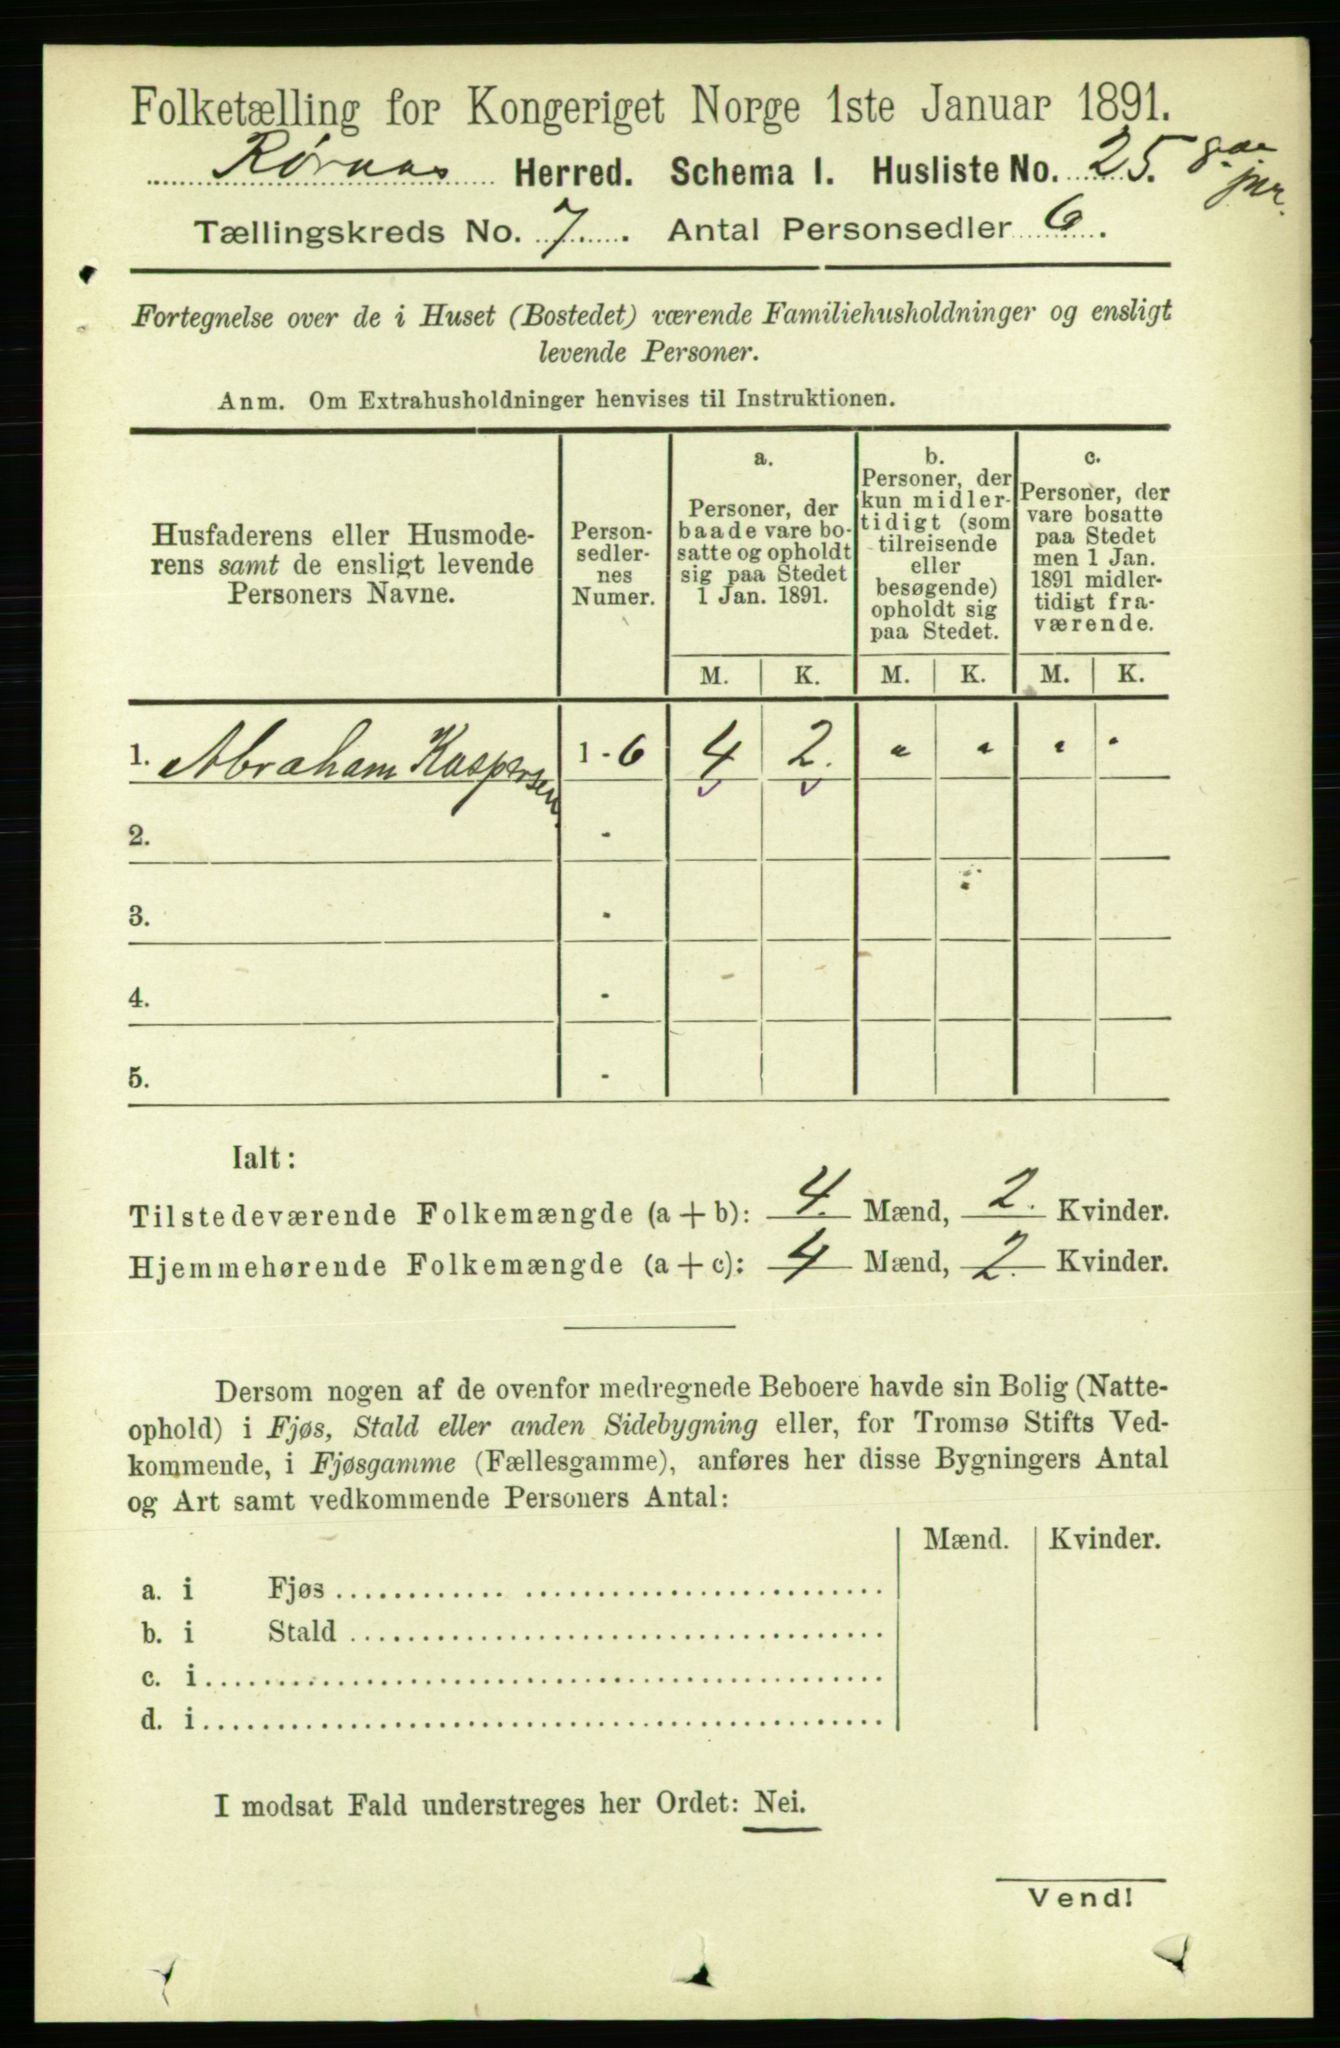 Folketælling for Kongeriget Norge 1ste Januar 1891.
Røraas Herred. Schema I. Husliste No. 25.
Tællingskreds No. 7. Antal Personsedler 6.
Fortegnelse over de i Huset (Bostedet) værende Familiehusholdninger og ensligt
levende Personer.
Anm. Om Extrahusholdninger henvises til Instruktionen.
Husfaderens eller Husmode-
rens samt de ensligt levende
Personers Navne.
Person-
sedler-
nes
Numer.
a.
Personer, der
baade vare bo-
satte og opholdt
sig paa Stedet
1 Jan. 1891.
b.
Personer, der
kun midler-
tidigt (som
tilreisende
eller
besøgende)
opholdt sig
paa Stedet.
c.
Personer, der
vare bosatte
paa Stedet
men 1 Jan.
1891 midler-
tidigt fra-
værende.
M. K. M. K. M. K.
1. Abraham Kaspersen 1 - 6 4 2. " " " "
2. -
3. -
4. -
5. -
Ialt:
Tilstedeværende Folkemængde (a + b): 4. Mænd, 2. Kvinder.
Hjemmehørende Folkemængde (a + c): 4 Mænd, 2. Kvinder.
Dersom nogen af de ovenfor medregnede Beboere havde sin Bolig (Natte-
ophold) i Fjøs, Stald eller anden Sidebygning eller, for Tromsø Stifts Ved-
kommende, i Fjøsgamme (Fællesgamme), anføres her disse Bygningers Antal
og Art samt vedkommende Personers Antal:
Mænd. Kvinder.
a. i Fjøs
b. i Stald
c. i
d. i
I modsat Fald understreges her Ordet: Nei.
Vend!